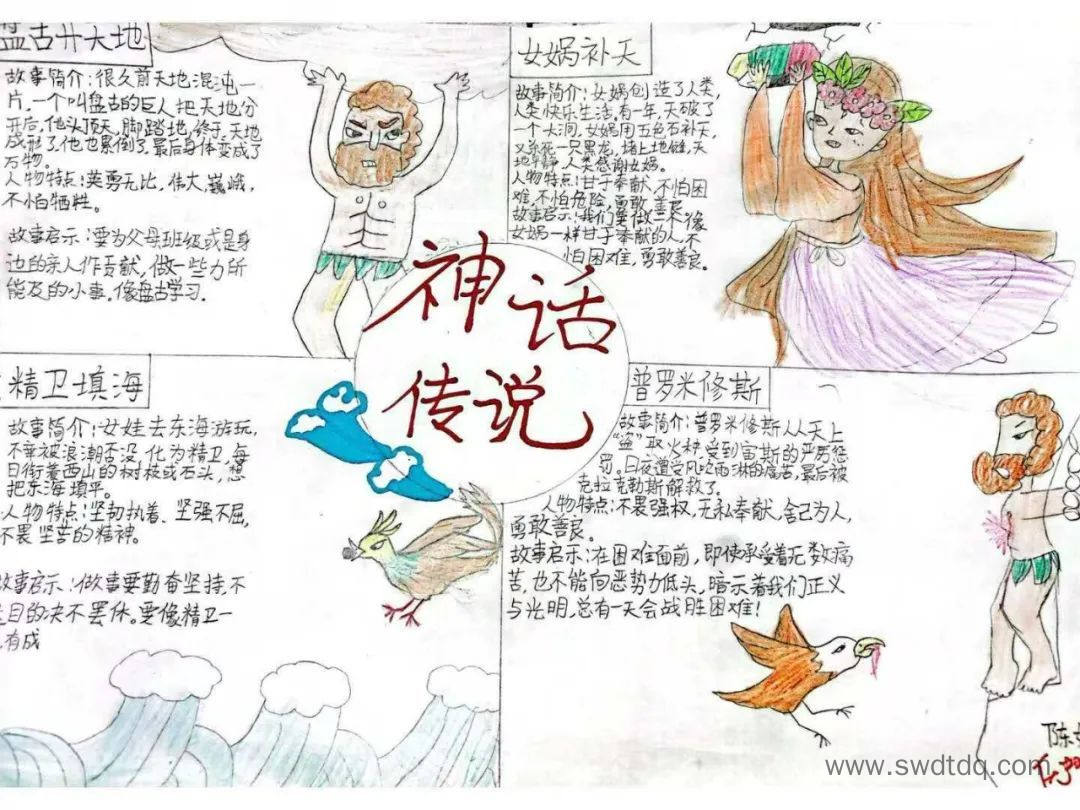 盘古开天地
故事简介:很久前天地混沌一
片.一个叫盘古的巨人把天地分
开后,他头顶天,脚踏地,终于,天地
成形了,他也累倒了,最后身体变成了
万物.
人物特点:英勇无比,伟大,巍峨,
不怕牺牲。
故事启示:要为父母班级或是身
边的亲人作贡献,做一些力所
能及的小事。像盘古学习.
女娲补天
故事简介:女娲创造了人类,
人类快乐生活.有一年,天破了
一个大洞.女娲用五色石补天,
又杀死一只黑龙,堵上地缝,天
地平静,人类感谢女娲.
人物特点:甘于奉献,不怕困
难,不怕危险,勇敢善良
故事启示:我们要做一个像
女娲一样甘于奉献的人,不
怕困难,勇敢善良。
神话
传说
精卫填海
故事简介:女娃去东海游玩,
不幸被浪潮吞没,化为精卫,每
日衔着西山的树枝或石头,想
把东海填平。
人物特点:坚韧执着、坚强不屈,
不畏坚苦的精神。
故事启示:做事要勤奋坚持,不
达目的决不罢休。要像精卫一
有成
普罗米修斯
故事简介:普罗米修斯从人天上
“盗”取火种,受到宙斯的严厉惩
罚。日夜遭受风吹雨淋的痛苦,最后被
克拉克勒斯解救了。
人物特点:不畏强权,无私奉献,舍己为人,
勇敢善良。
故事启示:在困难面前,即使承受着无数痛
苦,也不能向恶势力低头,暗示着我们正义
与光明,总有一天会战胜困难!
陈
www.swdtdq.com